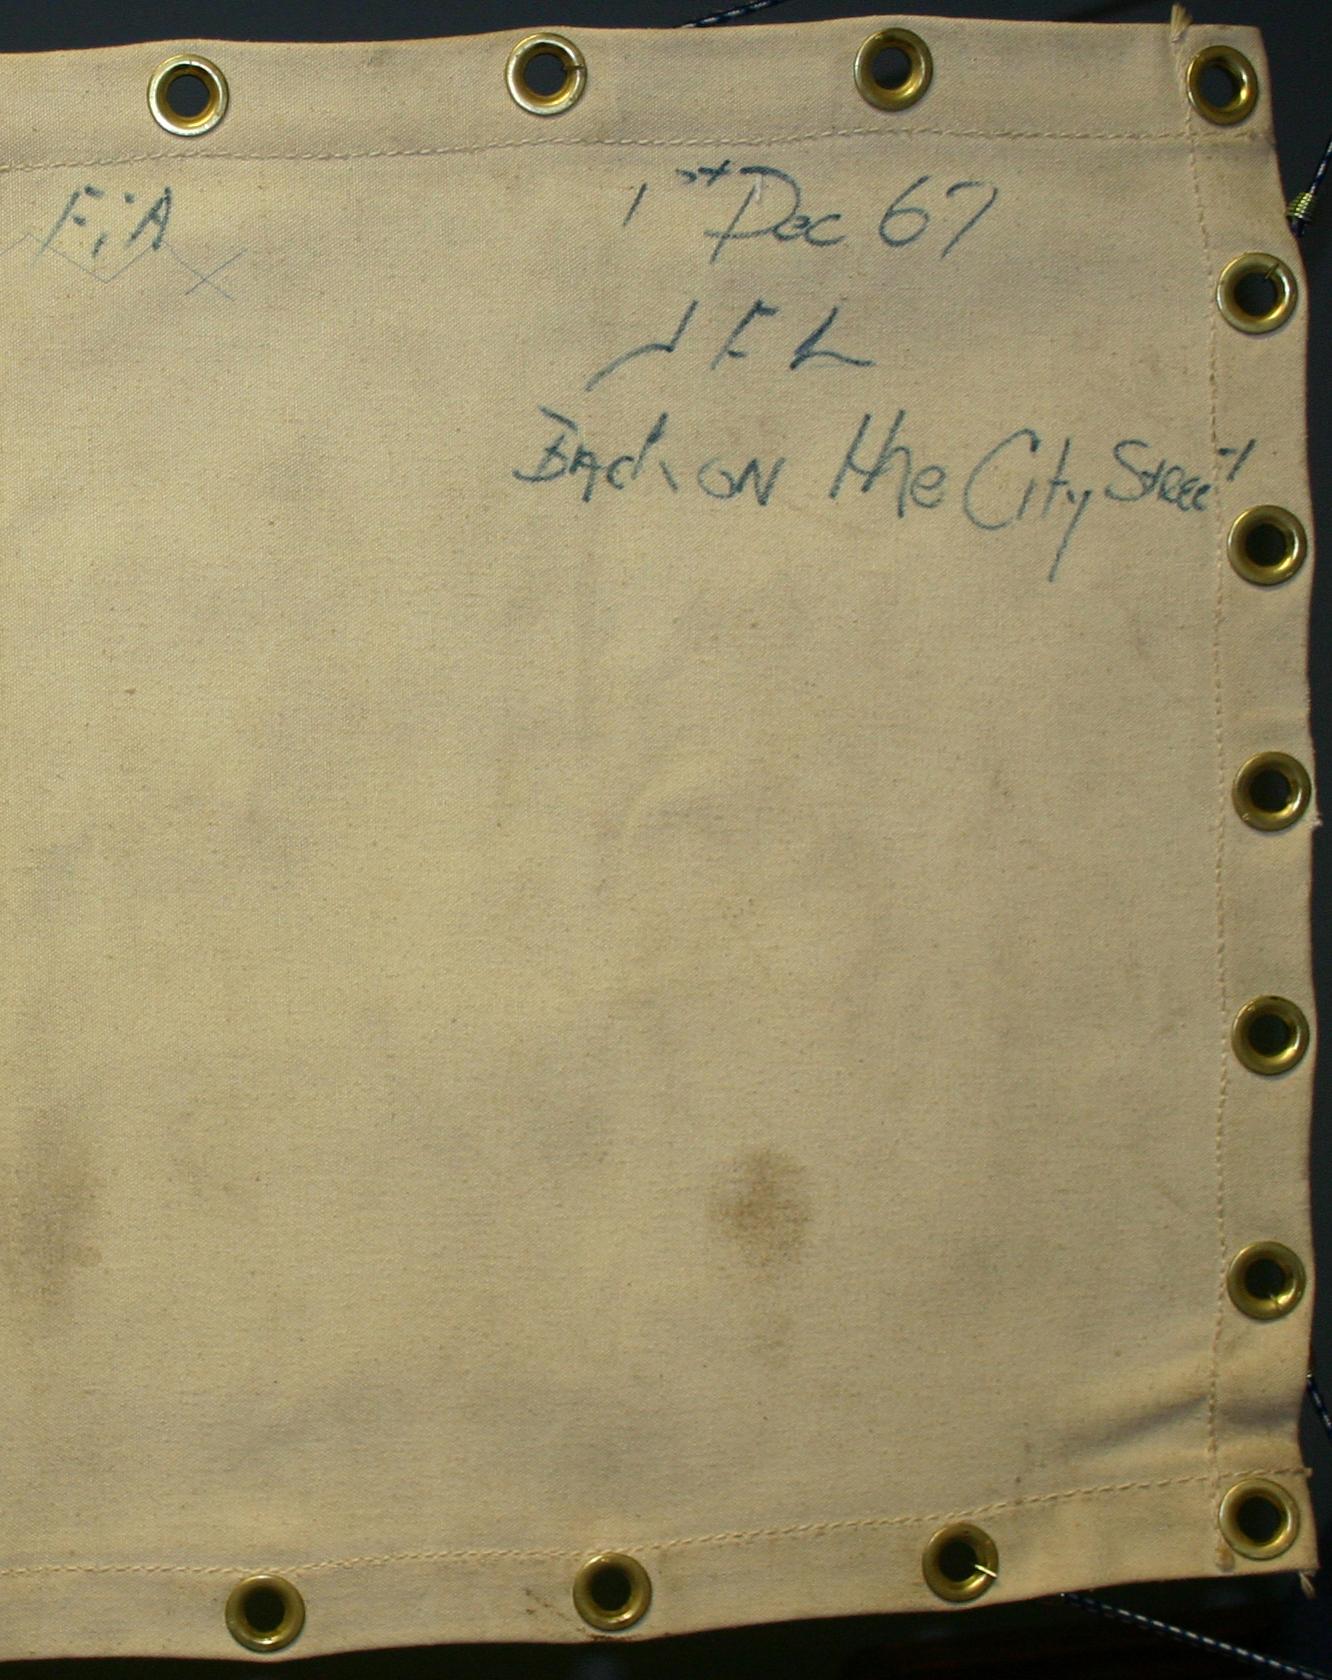 FiA
1st Dec 67
JEL
Back on the City Street